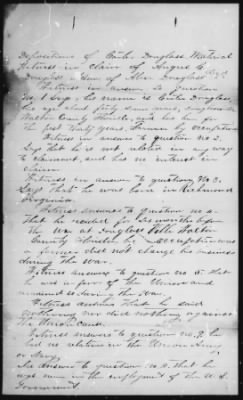 Depositions of Carlos Douglass Material
Witness in claim of Angus C.
Douglass & Exec. of Alex. Douglass Decd.
Witness in answer to question
No. 1 Says, his name is Carlos Douglass
his age about fifty
Walton County Florida, and has been for
the past thirty years, Farmer by occupation
Witness answers to question No 2.
Says that he is not related in any way
to claimant, and has no interest in
claim
Witness in answer to question No 3.
Says that he was born in Richmond
Virginia
Witness answers to question No 4.
That he resided for six months before
the war at Douglass Walton
County Florida by occupation was
a farmer did not change his business
during the war.
Witness answers to question No 5. that
he was in favor of the Union and
remained so during the war.
Witness answers that he said
nothing nor did nothing against
the Union Cause.
Witness answers to question No. 7. he
had no relation in the Union Army
or Navy.
In answer to question No 8. that he
was never in the employment of the U.S.
Government.